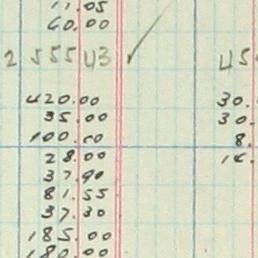 11.05
60.00
2 555 43 ✓ 45
420.00 30.
35.00 30.
100.00 8.
28.00
37.90
81.55
37.30
185.00
180.00